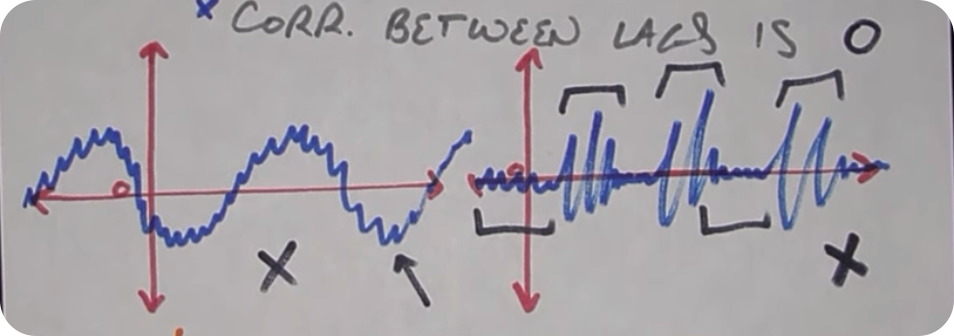 x CORR. BETWEEN LAGS IS 0
0 0
X X